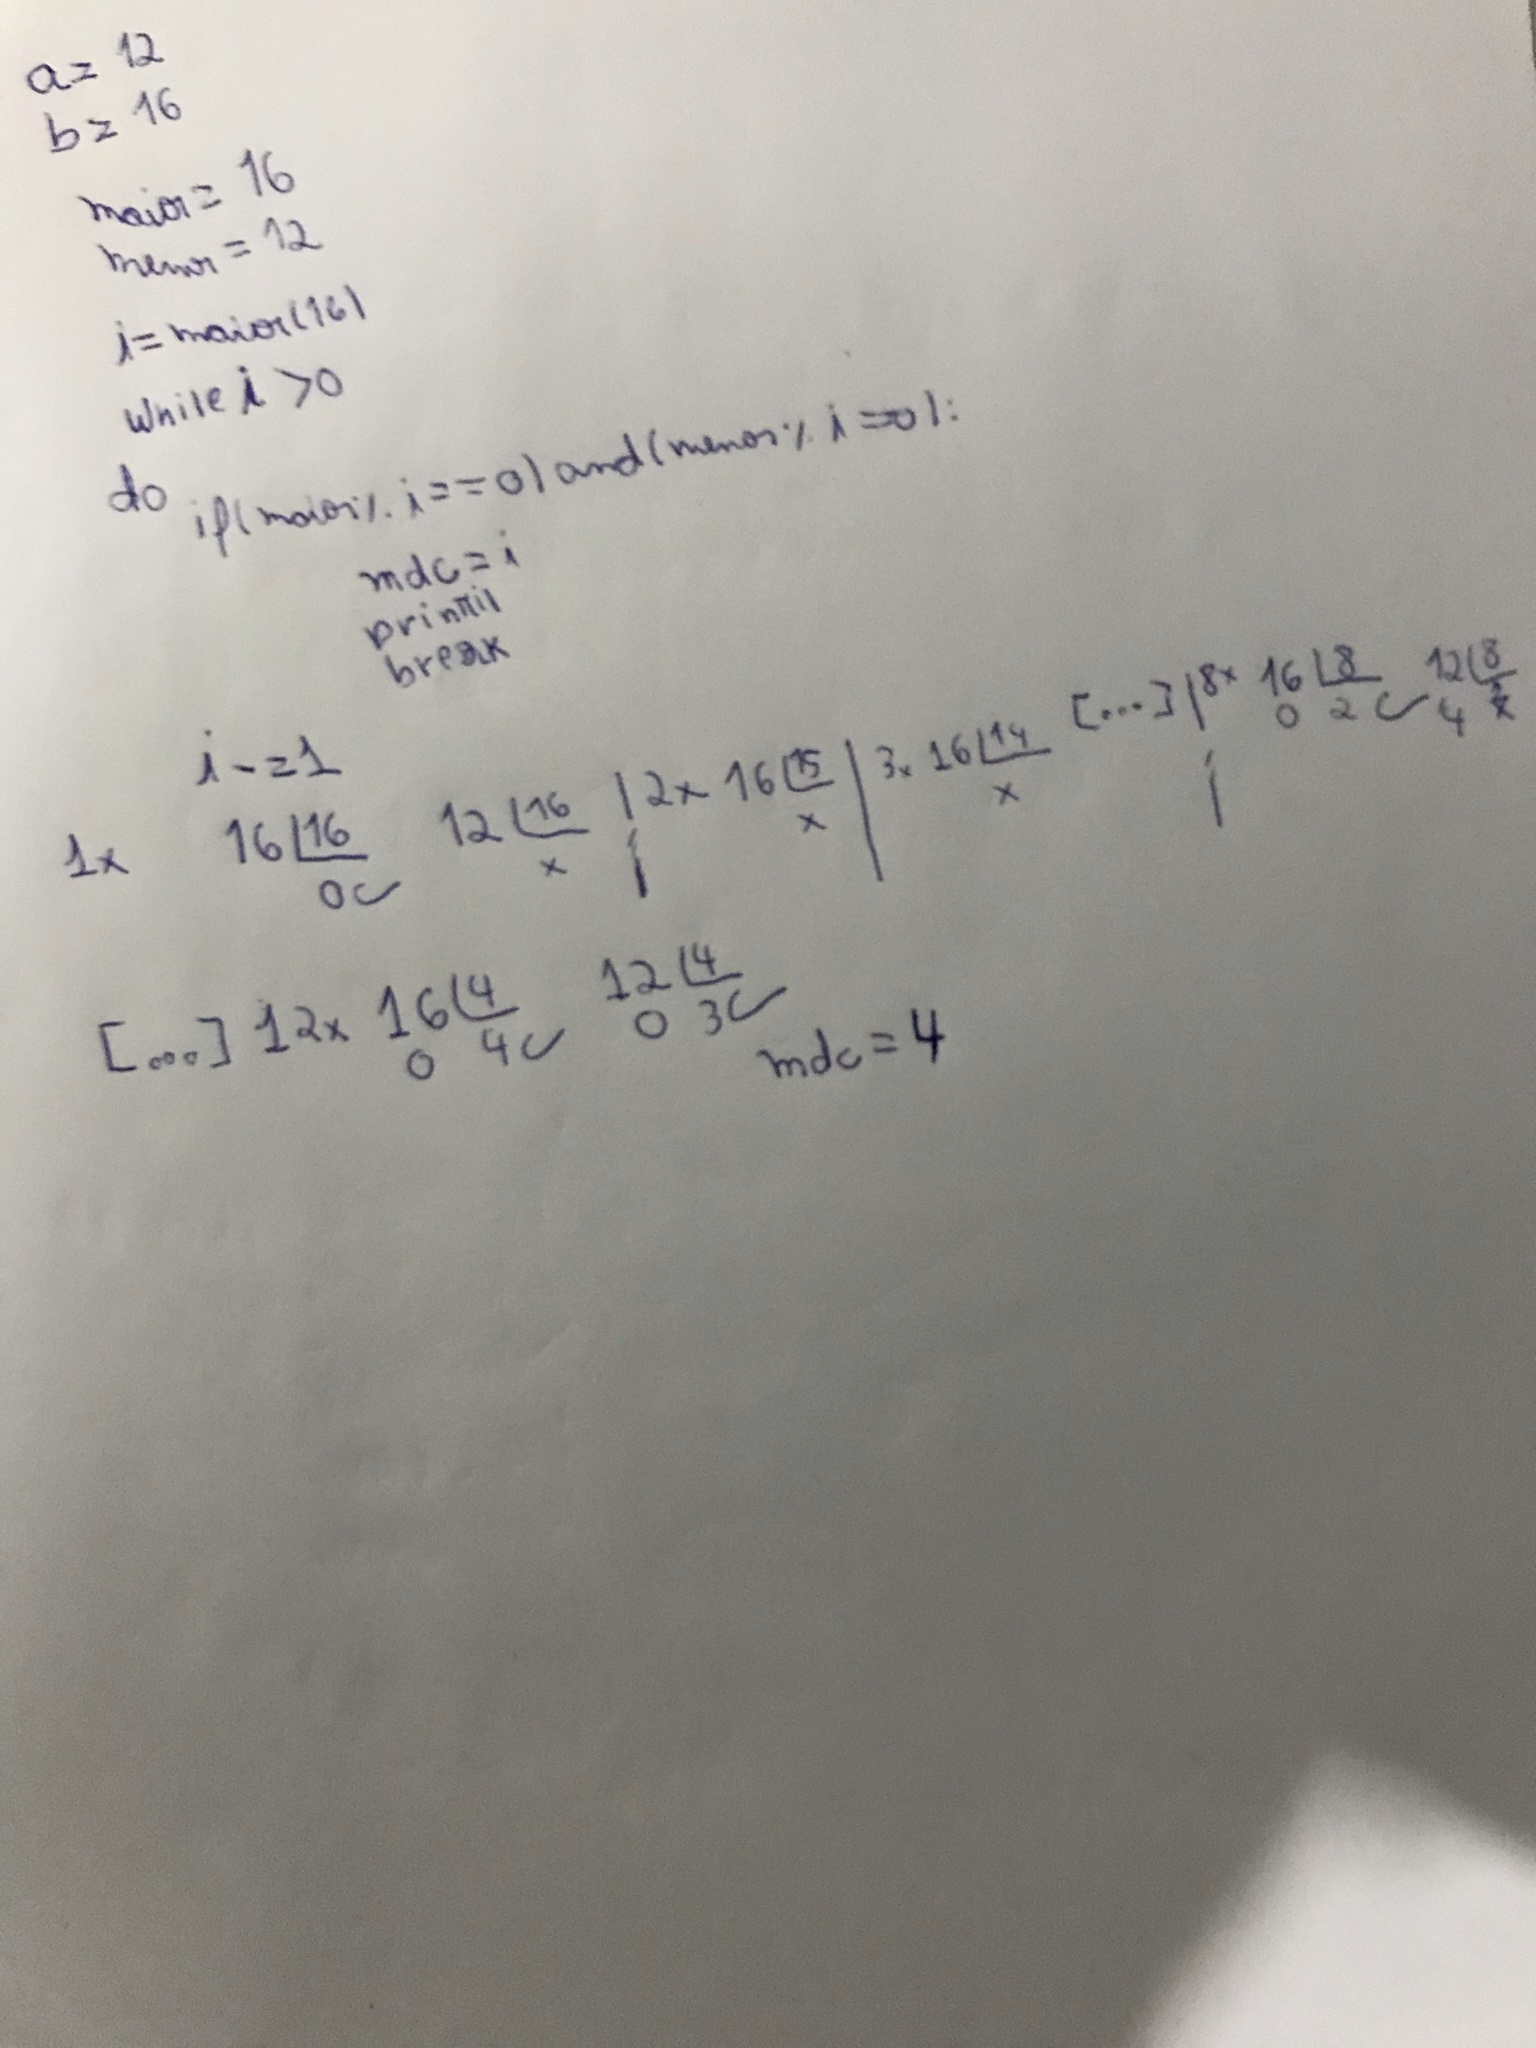 a= 12
b= 16
maior= 16
menor= 12
i= maior(16)
while i >0
do if(maior%i==0) and(menor%i==0):
mdc=i
print(i)
break
i-=1
1x 16|16 0 12|16 x | 2x 16|15 x | 3x 16|14 x [...] | 8x 16|8 0 2 12|8 4
[...] 12x 16|4 0 4 12|4 0 3
mdc=4